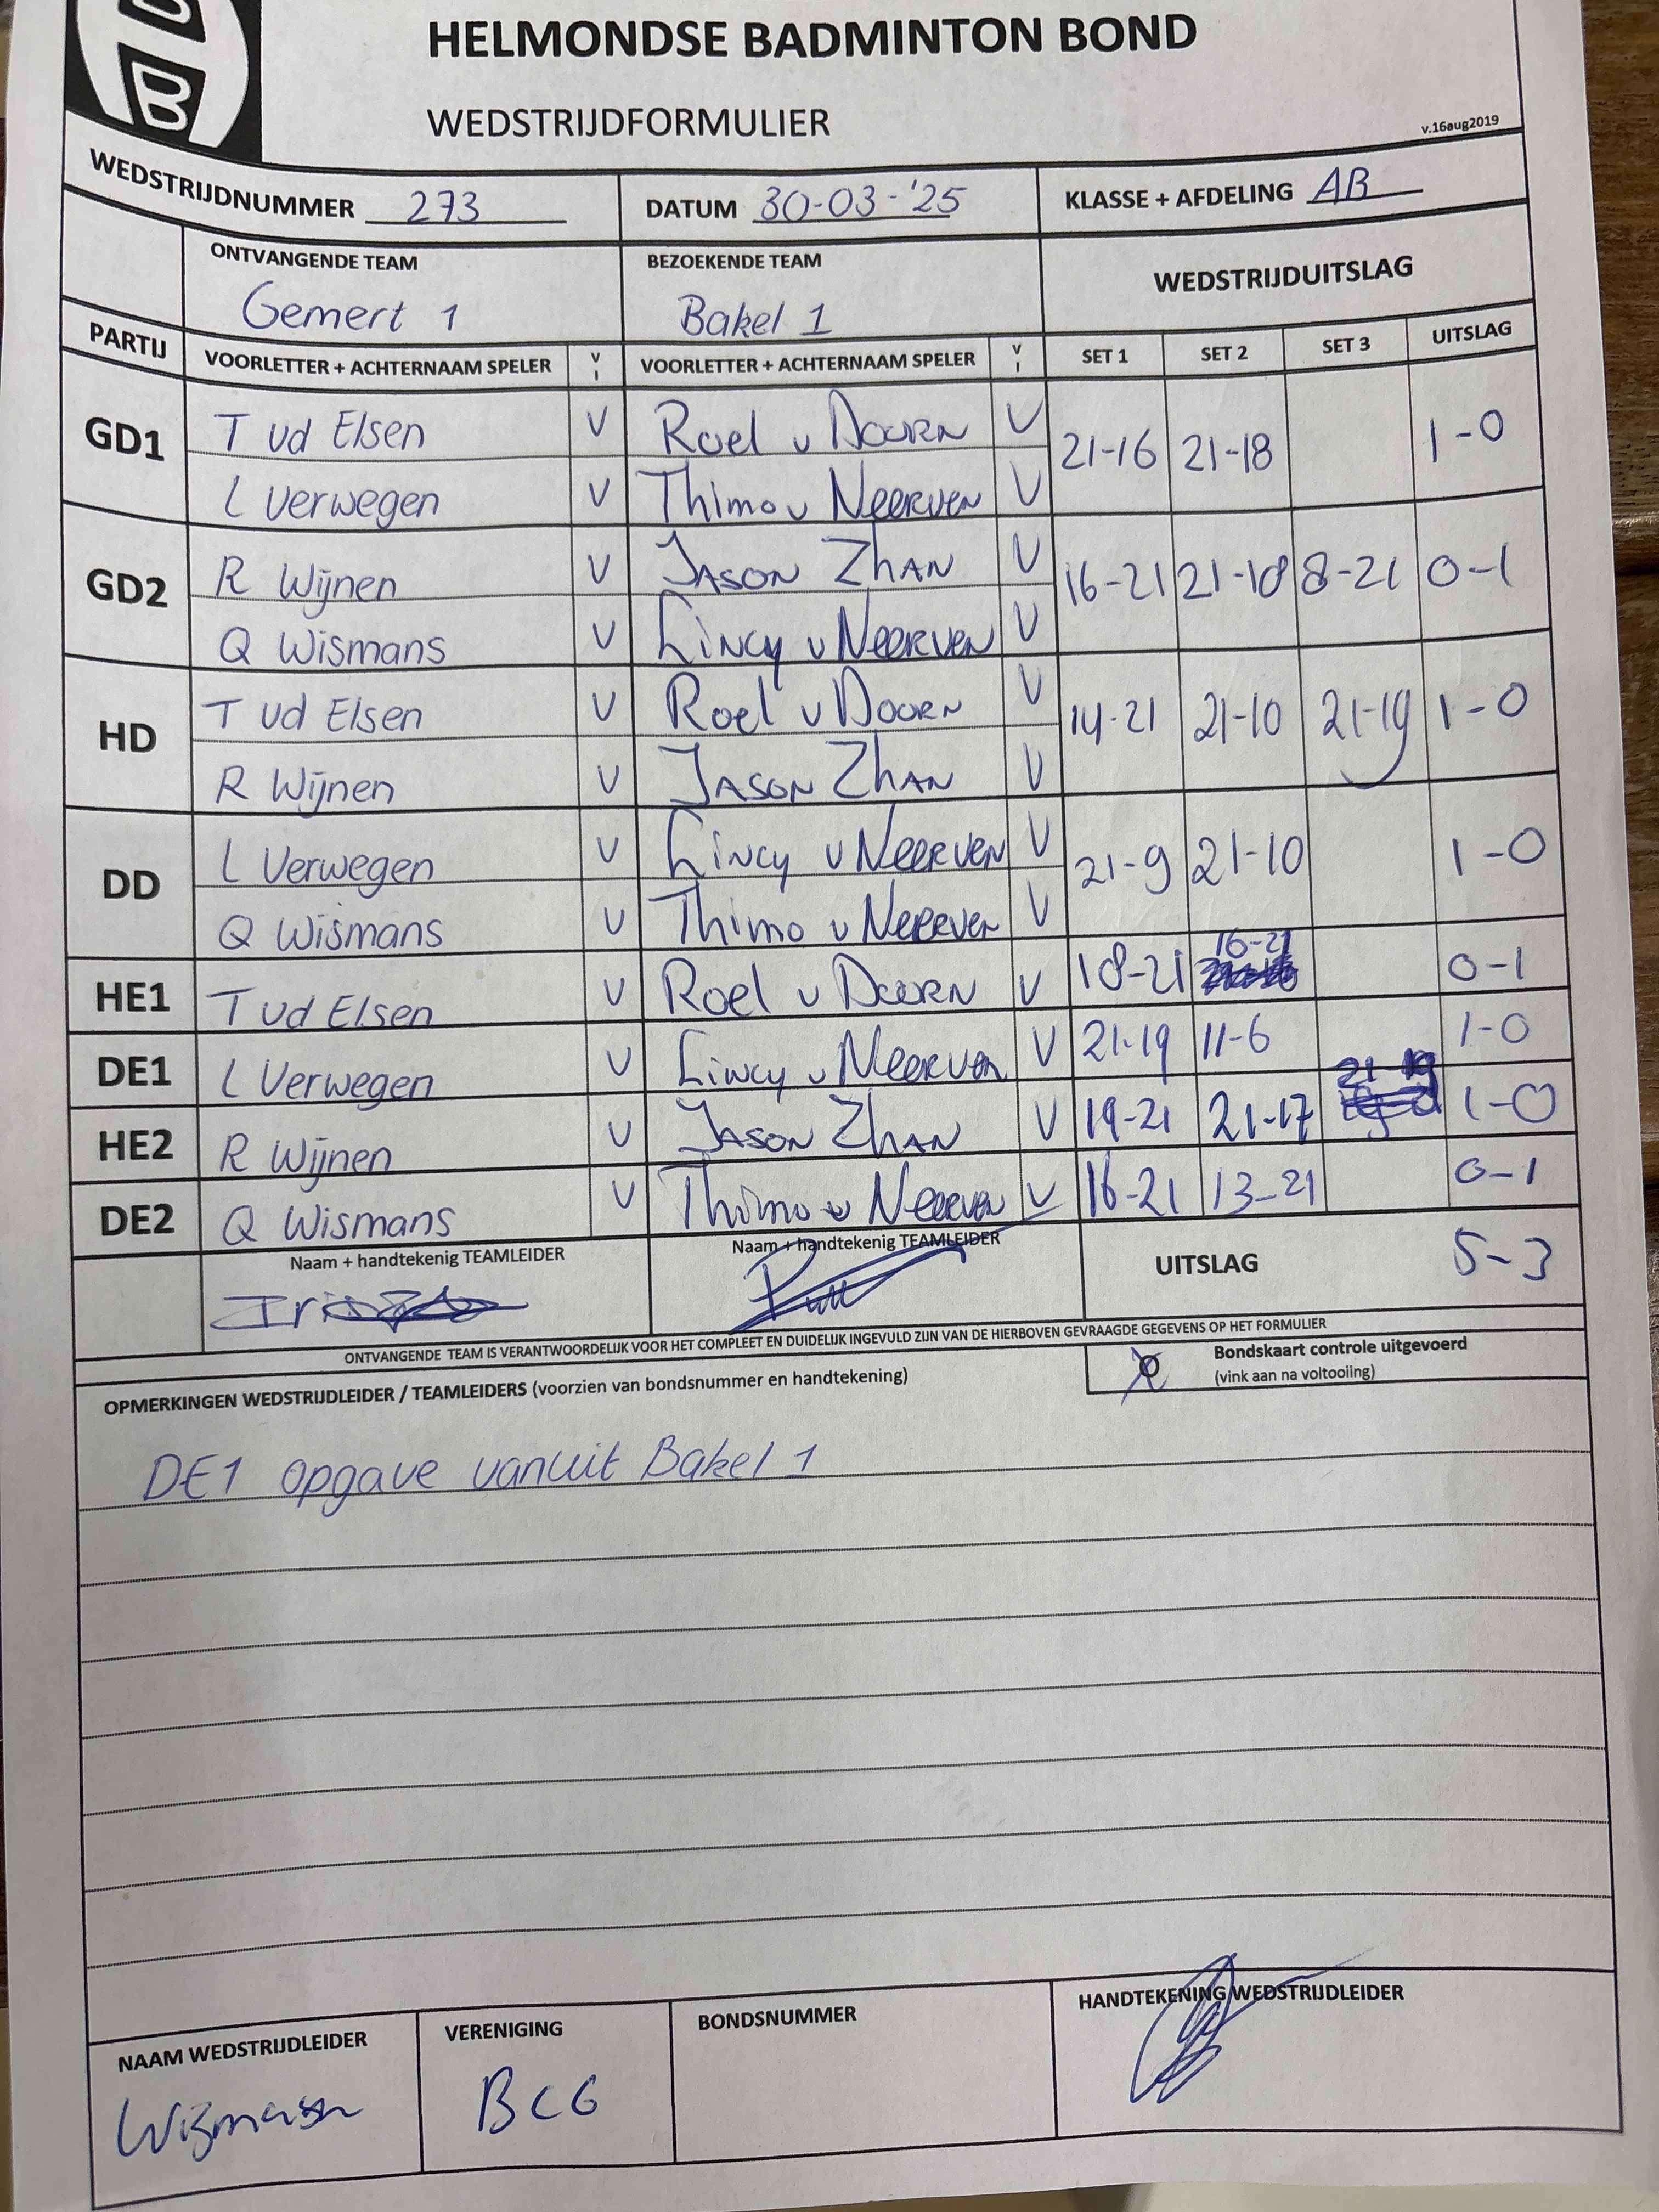 B
HELMONDSE BADMINTON BOND
WEDSTRIJDFORMULIER
v.16aug2019
WEDSTRIJDNUMMER 273 DATUM 30-03-'25 KLASSE + AFDELING AB
ONTVANGENDE TEAM BEZOEKENDE TEAM WEDSTRIJDUITSLAG
Gemert 1 Bakel 1
PARTIJ VOORLETTER + ACHTERNAAM SPELER V I VOORLETTER + ACHTERNAAM SPELER V I SET 1 SET 2 SET 3 UITSLAG
GD1 T vd Elsen V Roel v Doorn V 21-16 21-18 1-0
L Verwegen V Thimo v Neerven V
GD2 R Wijnen V Jason Zhan V 16-21 21-18 8-21 0-1
Q Wismans V Lincy v Neerven V
HD T vd Elsen V Roel v Doorn V 14-21 21-10 21-19 1-0
R Wijnen V Jason Zhan V
DD L Verwegen V Lincy v Neerven V 21-9 21-10 1-0
Q Wismans V Thimo v Neerven V
HE1 T vd Elsen V Roel v Doorn V 18-21 16-21 0-1
DE1 L Verwegen V Lincy v Neerven V 21-19 11-6 1-0
HE2 R Wijnen V Jason Zhan V 19-21 21-17 21-19 1-0
DE2 Q Wismans V Thimo v Neerven V 16-21 13-21 0-1
Naam + handtekenig TEAMLEIDER Naam + handtekenig TEAMLEIDER UITSLAG 5-3
ONTVANGENDE TEAM IS VERANTWOORDELIJK VOOR HET COMPLEET EN DUIDELIJK INGEVULD ZIJN VAN DE HIERBOVEN GEVRAAGDE GEGEVENS OP HET FORMULIER
OPMERKINGEN WEDSTRIJDLEIDER / TEAMLEIDERS (voorzien van bondsnummer en handtekening)
Bondskaart controle uitgevoerd
(vink aan na voltooiing)
DE1 opgave vanuit Bakel 1
NAAM WEDSTRIJDLEIDER VERENIGING BONDSNUMMER HANDTEKENING WEDSTRIJDLEIDER
BCG